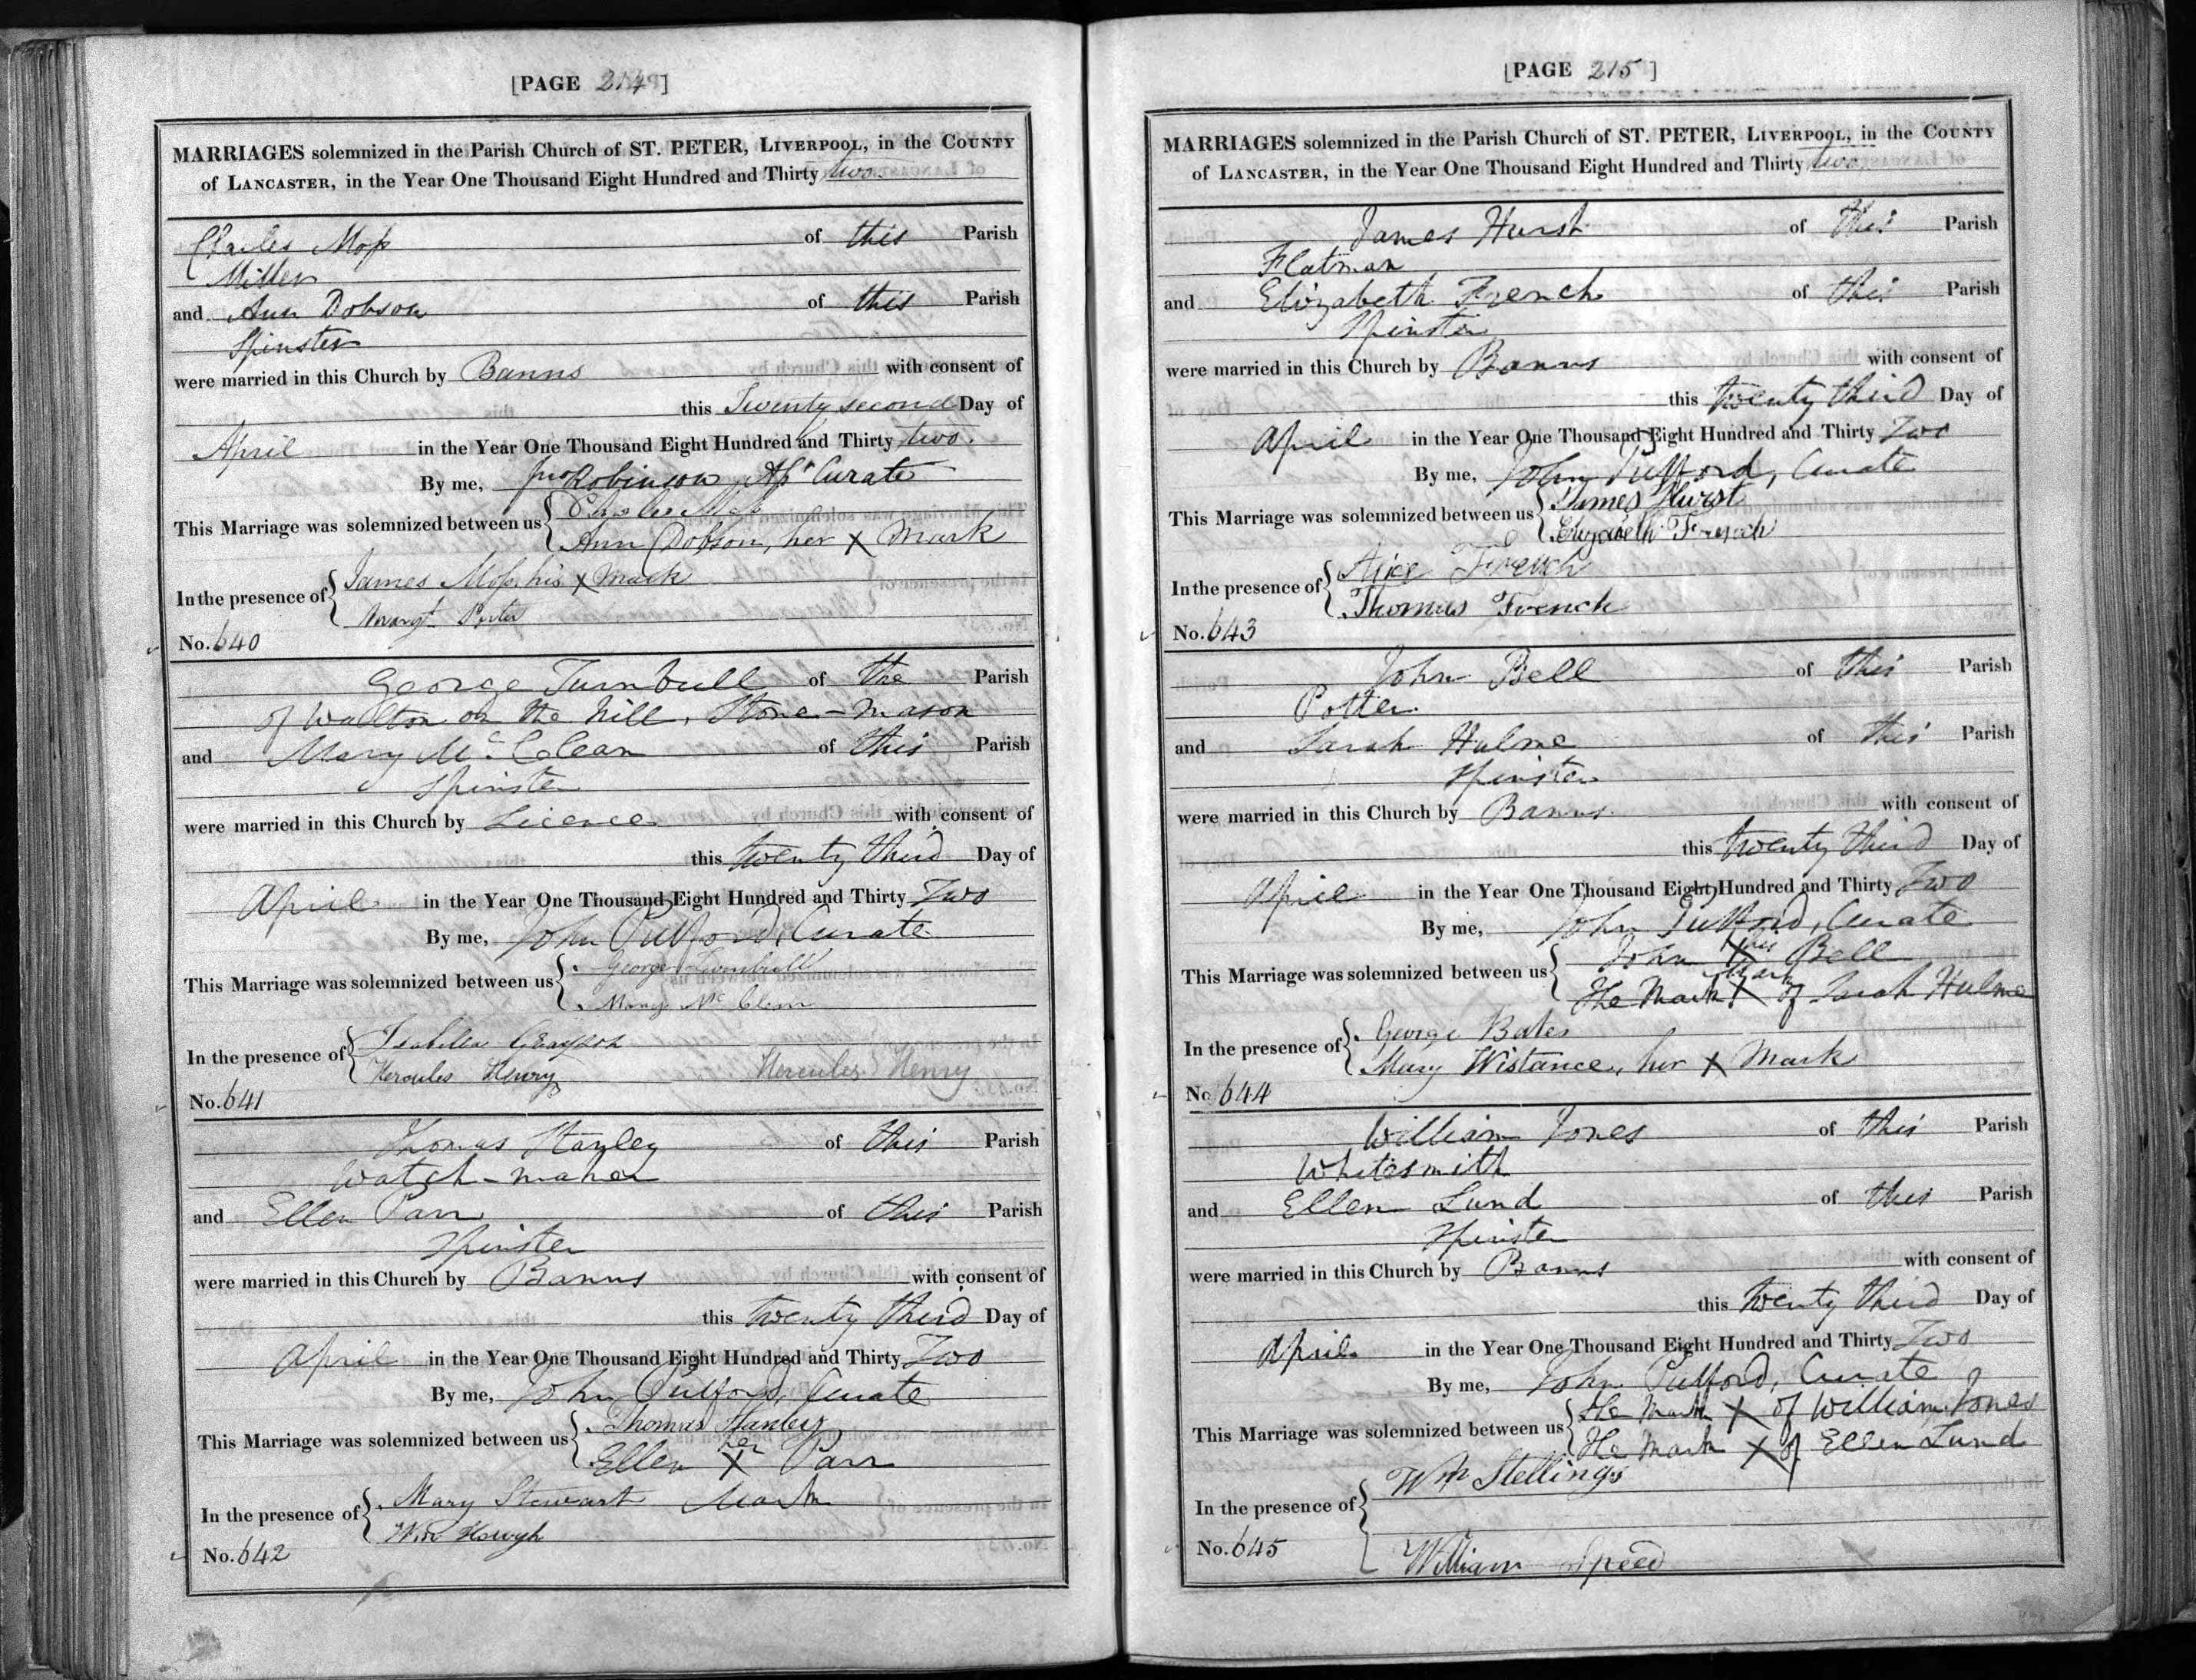 [PAGE 214]
MARRIAGES solemnized in the Parish Church of ST. PETER, LIVERPOOL, in the COUNTY
of LANCASTER, in the Year One Thousand Eight Hundred and Thirty two.
Charles Moſs of this Parish
Miller
and Ann Dobson of this Parish
Spinster
were married in this Church by Banns with consent of
this Twenty second Day of
April in the Year One Thousand Eight Hundred and Thirty two.
By me, Jno Robinson Aſst Curate
This Marriage was solemnized between us { Charles Moſs
Ann Dobson, her X Mark
In the presence of { James Moſs, his X Mark
Margt
No. 640
George Turnbull of the Parish
of Walton on the Hill, Stone-mason
and Mary Mc Clean of this Parish
Spinster
were married in this Church by Licence with consent of
this twenty third Day of
April in the Year One Thousand Eight Hundred and Thirty Two
By me, John Pulford, Curate
This Marriage was solemnized between us { George Turnbull
Mary Mc Clean
In the presence of { Isabella
Hercules Henry Hercules Henry
No. 641
Thomas Stanley of this Parish
Watch-maker
and Ellen Parr of this Parish
Spinster
were married in this Church by Banns with consent of
this twenty third Day of
April in the Year One Thousand Eight Hundred and Thirty Two
By me, John Pulford, Curate
This Marriage was solemnized between us { Thomas Stanley
her
Ellen X Parr
In the presence of { Mary Stewart Mark
Wm Hough
No. 642
[PAGE 215]
MARRIAGES solemnized in the Parish Church of ST. PETER, LIVERPOOL, in the COUNTY
of LANCASTER, in the Year One Thousand Eight Hundred and Thirty two.
James Hurst of this Parish
Flatman
and Elizabeth French of this Parish
Spinster
were married in this Church by Banns with consent of
this twenty third Day of
April in the Year One Thousand Eight Hundred and Thirty Two
By me, John Pulford, Curate
This Marriage was solemnized between us { James Hurst
Elizabeth French
In the presence of { Alice French
Thomas French
No. 643
John Bell of this Parish
Potter.
and Sarah Hulme of this Parish
Spinster
were married in this Church by Banns. with consent of
this twenty third Day of
April in the Year One Thousand Eight Hundred and Thirty Two
By me, John Pulford, Curate
his
This Marriage was solemnized between us { John X Bell
Mark
The Mark X of Sarah Hulme
In the presence of { George Bates
Mary Wistance, her X Mark
No. 644
William Jones of this Parish
Whitesmith
and Ellen Lund of this Parish
Spinster
were married in this Church by Banns with consent of
this twenty third Day of
April in the Year One Thousand Eight Hundred and Thirty Two
By me, John Pulford, Curate
This Marriage was solemnized between us { The Mark X of William Jones
The Mark X of Ellen Lund
In the presence of { Wm Stellings
No. 645
William Speed